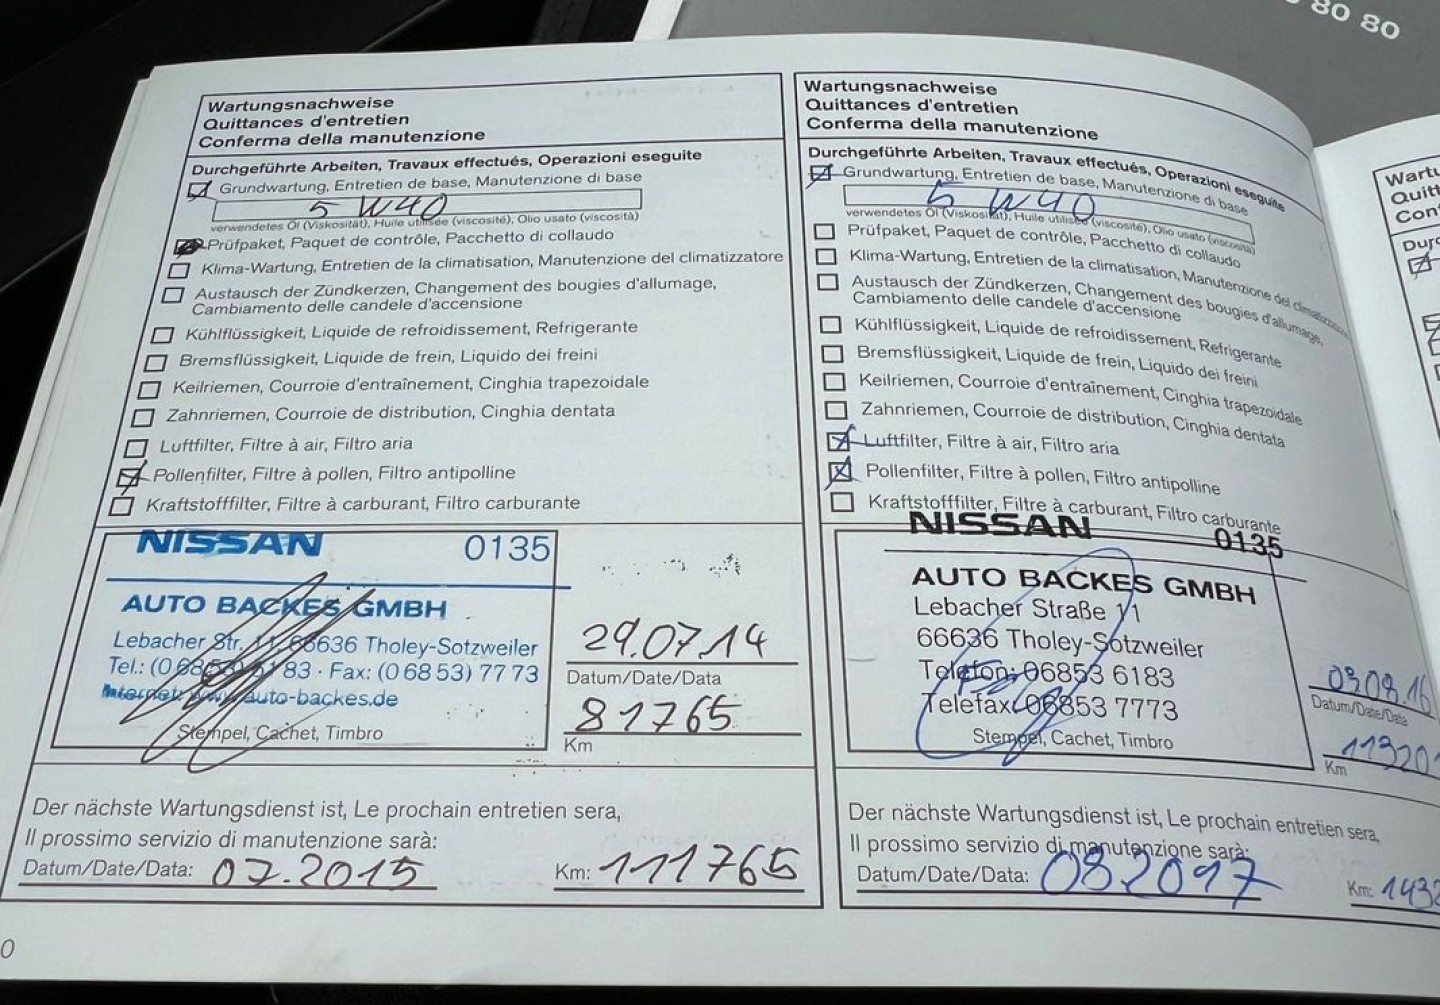 80 80
Wartungsnachweise
Quittances d'entretien
Conferma della manutenzione
Durchgeführte Arbeiten, Travaux effectués, Operazioni eseguite
Grundwartung, Entretien de base, Manutenzione di base
5 W40
verwendetes Öl (Viskosität), Huile utilisée (viscosité), Olio usato (viscosità)
Prüfpaket, Paquet de contrôle, Pacchetto di collaudo
Klima-Wartung, Entretien de la climatisation, Manutenzione del climatizzatore
Austausch der Zündkerzen, Changement des bougies d'allumage,
Cambiamento delle candele d'accensione
Kühlflüssigkeit, Liquide de refroidissement, Refrigerante
Bremsflüssigkeit, Liquide de frein, Liquido dei freini
Keilriemen, Courroie d'entraînement, Cinghia trapezoidale
Zahnriemen, Courroie de distribution, Cinghia dentata
Luftfilter, Filtre à air, Filtro aria
Pollenfilter, Filtre à pollen, Filtro antipolline
Kraftstofffilter, Filtre à carburant, Filtro carburante
NISSAN 0135
AUTO BACKES GMBH
Lebacher Str. 11, 66636 Tholey-Sotzweiler
Tel.: (0 68 53) 61 83 · Fax: (0 68 53) 77 73
Internet: www.auto-backes.de
Stempel, Cachet, Timbro
29.07.14
Datum/Date/Data
81765
Km
Der nächste Wartungsdienst ist, Le prochain entretien sera,
Il prossimo servizio di manutenzione sarà:
Datum/Date/Data: 07.2015 Km: 111765
0
Wartungsnachweise
Quittances d'entretien
Conferma della manutenzione
Durchgeführte Arbeiten, Travaux effectués, Operazioni eseguite
Grundwartung, Entretien de base, Manutenzione di base
5 W40
verwendetes Öl (Viskosität), Huile utilisée (viscosité), Olio usato (viscosità)
Prüfpaket, Paquet de contrôle, Pacchetto di collaudo
Klima-Wartung, Entretien de la climatisation, Manutenzione del climatizzatore
Austausch der Zündkerzen, Changement des bougies d'allumage,
Cambiamento delle candele d'accensione
Kühlflüssigkeit, Liquide de refroidissement, Refrigerante
Bremsflüssigkeit, Liquide de frein, Liquido dei freini
Keilriemen, Courroie d'entraînement, Cinghia trapezoidale
Zahnriemen, Courroie de distribution, Cinghia dentata
Luftfilter, Filtre à air, Filtro aria
Pollenfilter, Filtre à pollen, Filtro antipolline
Kraftstofffilter, Filtre à carburant, Filtro carburante
NISSAN 0135
AUTO BACKES GMBH
Lebacher Straße 11
66636 Tholey-Sotzweiler
Telefon: 06853 6183
Telefax: 06853 7773
Stempel, Cachet, Timbro
03.08.16
Datum/Date/Data
113201
Km
Der nächste Wartungsdienst ist, Le prochain entretien sera,
Il prossimo servizio di manutenzione sarà:
Datum/Date/Data: 082017 Km: 1432
Wartu
Quitt
Con
Durc